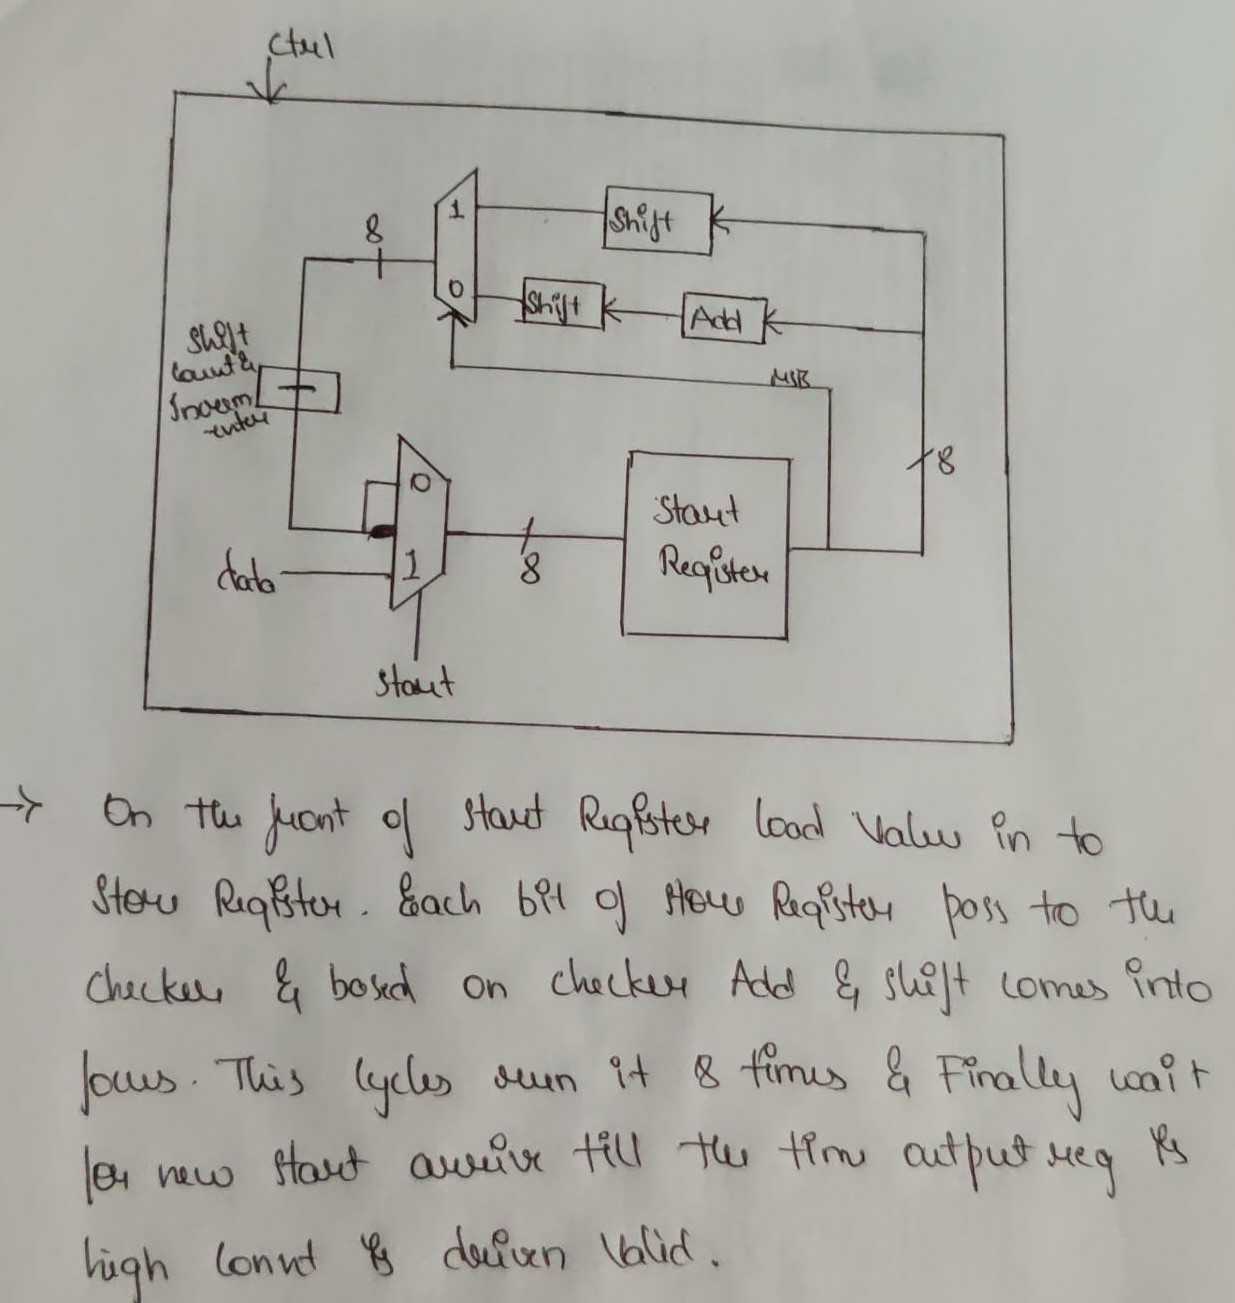 Ctrl
1
Shift
8
0
Shift
Add
Shift
Count &
Increm
-enter
MSB
8
0
Start
Register
data
1
8
Start
→ On the front of Start Register load value in to
Store Register. Each bit of store Register pass to the
checker & based on checker Add & shift comes into
focus. This cycles run it 8 times & Finally wait
for new start arrive till the time output reg is
high count is driven valid.